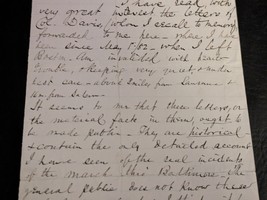 I have read with
very great interest the letters of
Col. Davis, when I recall to memory
forwarded to me here - where I have
been since May 1, '02 - when I left
Boston. Am invalided with heart
trouble, & keeping very quiet, & under
best care - about 2 miles from
It seems to me that these letters, or
the material facts in them, ought to
be made public - They are historical
& contain the only detailed account
I have seen of the real incidents
of the march thro' Baltimore. The
general public does not know these